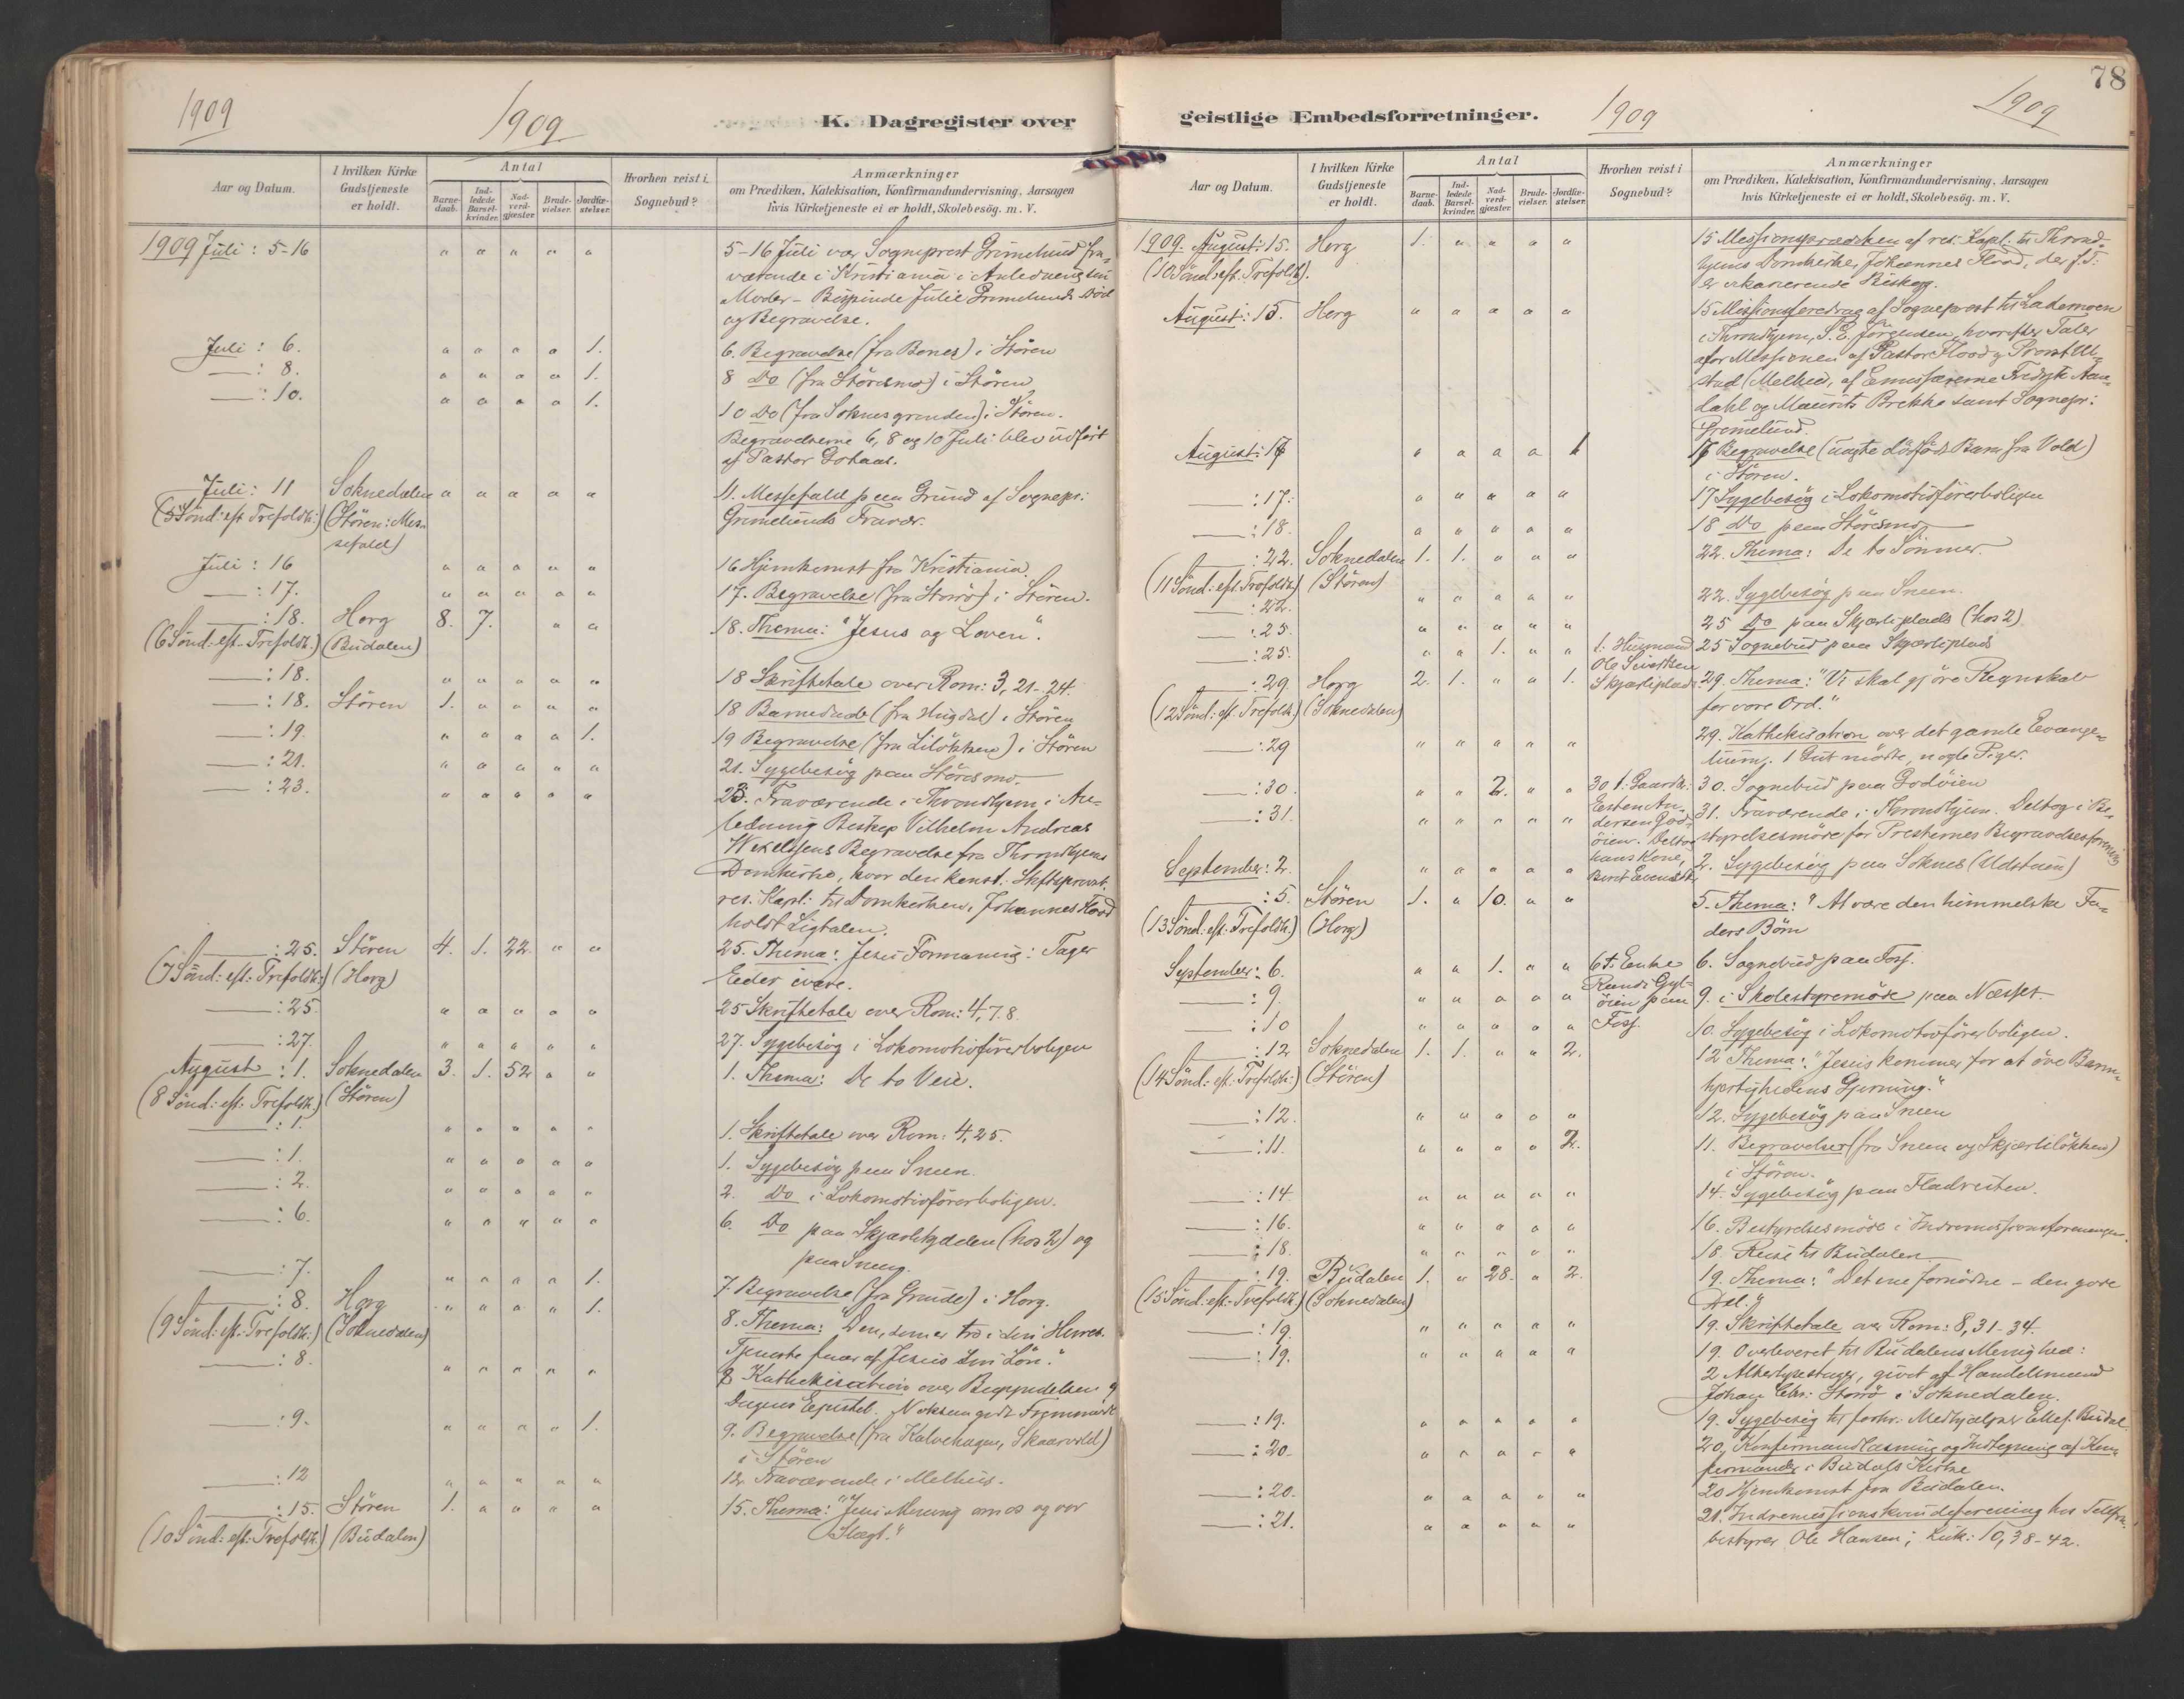 1909
1909
K. Dagregister over
Aar og Datum.
I hvilken Kirke Gudstjeneste er holdt.
Antal
Barne-daab.
Ind-ledede Barsel-kvinder.
Nad-verd-gjæster
Brude-vielser.
Jordfæ-stelser.
Hvorhen reist i Sognebud?
Anmærkninger
om Prædiken, Katekisation, Konfirmandundervisning, Aarsagen
hvis Kirketjeneste ei er holdt, Skolebesøg. m. V.
1909 Juli: 5-16 " " " " " 5-16 Juli var Sogneprest Grimelund fra-
værende i Kristiania i Anledning sin
Moder - Bispinde Julie Grimelunds Död
og Begravelse.
Juli: 6. " " " " 1. 6. Begravelse (fra Bones) i Stören
— : 8. " " " " 1. 8 Do (fra Störesmo) i Stören
— : 10. " " " " 1. 10 Do (fra Soknesgrenden) i Stören.
Begravelserne 6, 8 og 10 Juli blev udfört
af Pastor Gotaas.
Juli: 11 Soknedalen " " " " " 11. Messefald paa Grund af Sognepr:
(5 Sönd: eft Trefoldh:) (Stören: Mes- Grimelunds Fravær.
sefald)
Juli: 16 " " " " " 16 Hjemkomst fra Kristiania.
— : 17. " " " " " 17. Begravelse (fra Storrö) i Stören.
— : 18. Horg 8. 7. " " 18. Thema: "Jesus og Loven".
(6 Sönd: eft. Trefoldh.) (Budalen)
— : 18. " " " " " 18 Skriftetale over Rom: 3, 21-24.
— : 18. Stören 1. " " " " 18 Barnedaab (fra Hugdal) i Stören
— : 19. " " " " 1. 19 Begravelse (fra Lilökken) i Stören
— : 21. " " " " " 21. Sygebesög paa Störesmo.
— : 23. " " " " " 23. Fraværende i Throndhjem i An-
ledning Biskop Vilhelm Andreas
Wexelsens Begravelse fra Throndhjems
Domkirke, hvor den konst. Stiftsprovst,
res. Kapl: til Domkirken, Johannes Flood
holdt Ligtalen.
— : 25. Stören 4. 1. 22. " " 25. Thema: Jesu Formaning: Tager
(7 Sönd: eft: Trefoldh:) (Horg) Eder ivare.
— : 25. " " " " " 25 Skriftetale over Rom: 4, 7.8.
— : 27. " " " " " 27. Sygebesög i Lokomotivförerboligen
August: 1. Soknedalen 3. 1. 52 " " 1. Thema: De to Veie.
(8 Sönd: eft. Trefoldh.) (Stören)
— : 1. " " " " " 1. Skriftetale over Rom: 4, 25.
— : 1. " " " " " 1. Sygebesög paa Sneen.
— : 2. " " " " " 2. Do i Lokomotivförerboligen.
— : 6. " " " " " 6. Do paa Skjærlibygden (hos 2) og
paa Sneen.
— : 7. " " " " 1. 7. Begravelse (fra Grinde) i Horg.
— : 8. Horg " " " " 1. 8. Thema: Den, som er tro i din Herres
(9 Sönd: eft: Trefoldh:) (Soknedalen) Tjeneste faar af Jesus sin Lön."
— : 8. " " " " " 8 Kathekisation over Begyndelsen af
Dagens Epistel. Noksaa godt Fremmöde
— : 9. " " " " 1. 9. Begravelse (fra Kalvehagen, Skaarvold)
i Stören
— : 12 " " " " " 12. Fraværende i Melhus.
— : 15. Stören 1. " " " " 15. Thema: "Jesu Mening om os og vor
(10 Sönd: eft: Trefoldh.) (Budalen) Slægt."
78
1909
1909
geistlige Embedsforretninger.
Aar og Datum.
I hvilken Kirke Gudstjeneste er holdt.
Antal
Barne-daab.
Ind-ledede Barsel-kvinder.
Nad-verd-gjæster
Brude-vielser.
Jordfæ-stelser.
Hvorhen reist i Sognebud?
Anmærkninger
om Prædiken, Katekisation, Konfirmandundervisning, Aarsagen
hvis Kirketjeneste ei er holdt, Skolebesøg. m. V.
1909. August: 15. Horg 1. " " " " 15 Missionspræken af res. Kapl: til Thrond-
(10 Sönd: eft. Trefoldh). hjems Domkirke, Johannes Flood, der f. T.
er vikarierende Biskop.
August: 15. Horg " " " " " 15 Missionsforedrag af Sogneprest til Lademoen
i Throndhjem, S. E. Jörgensen, hvorefter Taler
for Missionen af Pastor Flood og Provst Ul-
stad (Melhus), af Emissærerne Fredrik Aan-
dahl og Maurits Brekke samt Sognepr:
Grimelund.
August: 17 " " " " 1 17 Begravelse (uægte dödfödt Barn fra Vold)
i Stören.
— : 17. " " " " " 17 Sygebesög i Lokomotivförerboligen
— : 18. " " " " " 18 Do paa Störesmo
— : 22. Soknedalen 1. 1. " " " 22. Thema: De to Sönner.
(11 Sönd: eft. Trefoldh.) (Stören)
— : 22. " " " " " 22. Sygebesög paa Sneen.
— : 25. " " " " " 25 Do paa Skjærliplads (hos 2)
— : 25. " " 1. " " 1: Husmand 25 Sognebud paa Skjærliplads
Ole Sivertsen
Skjærliplads.
— : 29 Horg 2. 1. " " 1. 29. Thema: "Vi skal gjöre Regnskab
(12 Sönd: eft. Trefoldh.) (Soknedalen) for vore Ord."
— : 29 " " " " " 29. Kathekisation over det gamle Evange-
lium. 1 Gut mödte, nogle Piger.
— : 30. " " 2. " " 30 1. Gaardbr: 30. Sognebud paa Godöien
Esten An-
dersen God-
öien. Deltog
hans Kone,
Berit Evensdtr.
— : 31. " " " " " 31. Fraværende i Throndhjem. Deltog i Be-
styrelsesmöde for Presternes Begravelsesforening
September: 2. " " " " " 2. Sygebesög paa Soknes (Udstuen)
— : 5. Stören 1. " 10. " " 5. Thema: "At være den himmelske Fa-
(13 Sönd: eft. Trefoldh.) (Horg) ders Börn
September: 6. " " 1. " " 6 t. Enke 6. Sognebud paa Fosf.
Randi Gyl-
öien paa
Fosf.
— : 9. " " " " " 9. i Skolestyremöde paa Næsset.
— : 10 " " " " " 10. Sygebesög i Lokomotivförerboligen.
— : 12 Soknedalen 1. 1. " " 2. 12 Thema: "Jesus kommer for at öve Barm-
(14 Sönd: eft. Trefoldh:) (Stören) hjertighedens Gjerning."
— : 12. " " " " " 12. Sygebesög paa Sneen
— : 11. " " " " 2. 11. Begravelser (fra Sneen og Skjærlilökken)
i Stören.
— : 14 " " " " " 14. Sygebesög paa Fladreiten.
— : 16. " " " " " 16. Bestyrelsesmöde i Indremissionsforeningen.
— : 18. " " " " " 18. Reise til Budalen
— : 19. Budalen 1. " 28. " 2. 19. Thema: "Det ene fornödne - den gode
(15 Sönd: eft: Trefoldh.) (Soknedalen) Del."
— : 19. " " " " " 19. Skriftetale over Rom: 8, 31-34.
— : 19. " " " " " 19. Overleveret til Budalens Menighed:
2 Alterlysestager, givet af Handelsmand
Johan Chr: Storrö i Soknedalen.
— : 19. " " " " " 19. Sygebesög til forhv: Medhjælper Ellef. Budal.
— : 20. " " " " " 20, Konfirmandlæsning og Indtegning af Kon-
firmander i Budals Kirke
— : 20. " " " " " 20 Hjemkomst fra Budalen.
— : 21. " " " " " 21. Indremissionskvindeforening hos
bestyrer Ole Hansen; Luk: 10, 38-42.